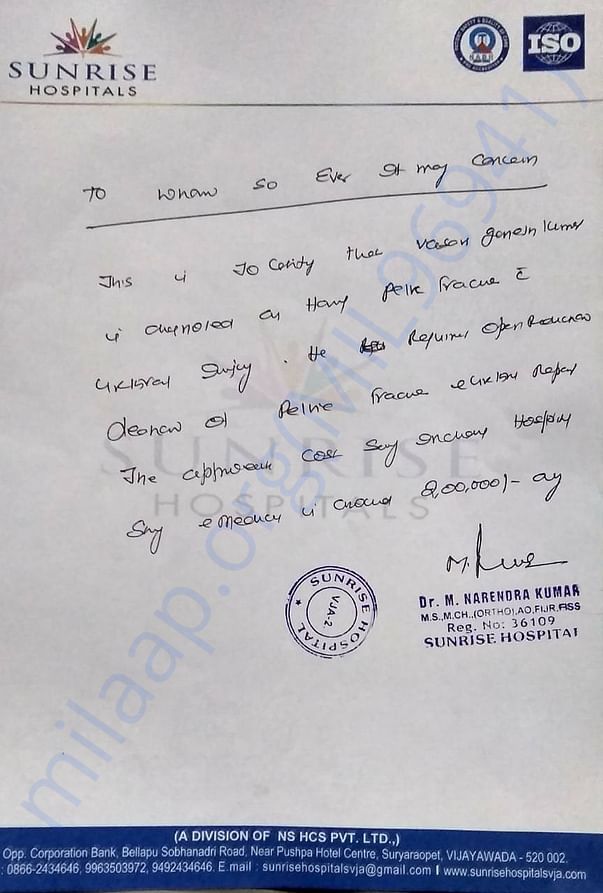 SUNRISE
HOSPITALS
ISO
To whom so Ever It may Concern
This is To Certify that Vasam Ganesh Kumar
is diagnosed as Having Pelvic Fracture c̄
urethral Injury. He Requires Open Reduction
of Pelvic Fracture & urethral Repair
The approximate cost
is around 2,00,000/-
SUNRISE
HOSPITALS
SUNRISE HOSPITAL
VJA-2
Dr. M. NARENDRA KUMAR
M.S.,M.CH.,(ORTHO),AO,FIJR,FISS
Reg. No: 36109
SUNRISE HOSPITAL
milaap.org(MIL969417)
(A DIVISION OF NS HCS PVT. LTD.,)
Opp. Corporation Bank, Bellapu Sobhanadri Road, Near Pushpa Hotel Centre, Suryaraopet, VIJAYAWADA - 520 002.
: 0866-2434646, 9963503972, 9492434646. E.mail : sunrisehospitalsvja@gmail.com I www.sunrisehospitalsvja.com